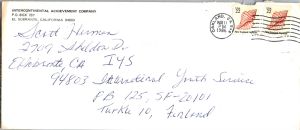 INTERCONTINENTAL ACHIEVEMENT COMPANY
P.O. BOX 727
EL SOBRANTE, CALIFORNIA 94803
Scott Herman
2709 Sheldon Dr
El Sobrante, CA IYS
94803 International Youth Service
PB 125, SF-20101
Turku 10, Finland